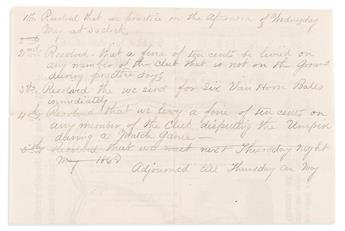 1th Resolved that we practice on the Afternoon of Wednesday
May at 3 oclock
2nd Resolved that a fine of ten cents be levied on
any member of the club that is not on the Ground
during practice days
3th Resolved the we sent for Six Van Horn Balls
immediately
4th Resolved that we levy a fine of ten cents on
any member of the Club disputing the Umpire
during a Match Game
5th Resolved that we meet next Thursday Night
May 1868
Adjourned till Thursday on May